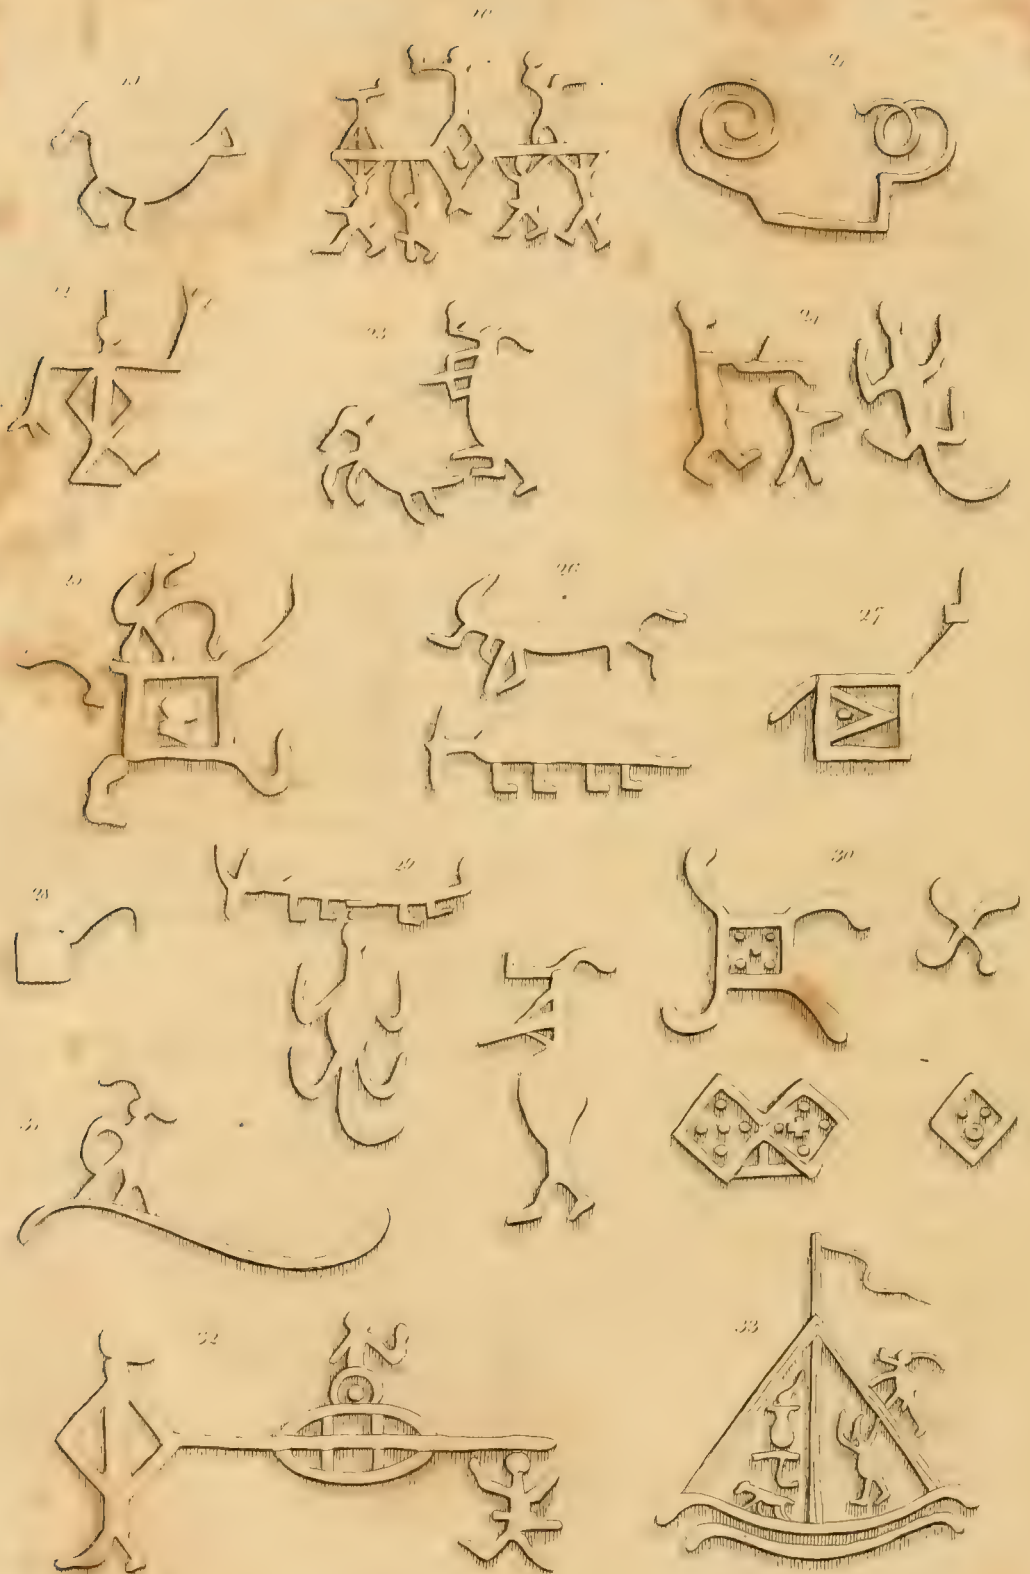 19
21
23
24
25
26
27
28
29
30
31
32
33